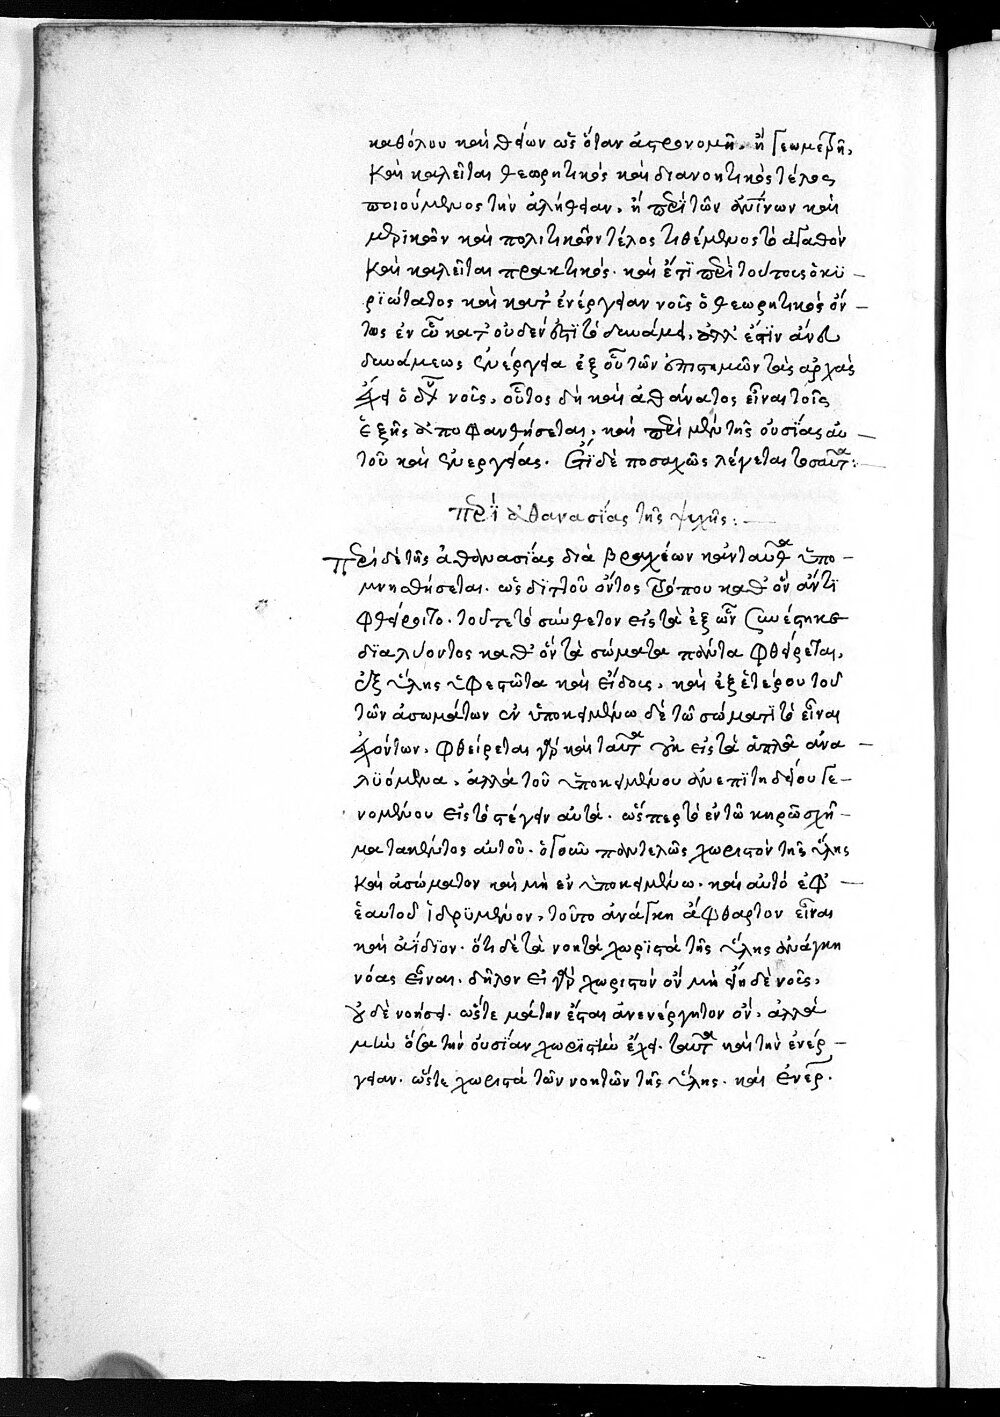 καθόλου καὶ θείων ὡς ὅταν ἀστρονομῆ, ἢ γεωμετρῆ,
καὶ καλεῖται θεωρητικός καὶ διανοητικὸς τέλος
ποιούμενος τὴν ἀλήθειαν, ἢ περὶ τῶν καὶ
μερικῶν καὶ πολιτικῶν τέλος τιθέμενος τὸ ἀγαθὸν
καὶ καλεῖται πρακτικός. καὶ ἔτι περὶ τούτοις ὁ κυ-
ριώτατος καὶ κατ' ἐνέργειαν νοῦς ὁ θεωρητικός ὄν-
τως ἐν ὧ κατ' οὐδέν ἐστι τὸ δυνάμει, ἀλλ' ἐστὶν ἄνευ
δυνάμεως ἐνέργεια ἐξ οὗ τῶν ἐπιστημῶν τὰς ἀρχὰς
ἔχει ὁ νοῦς, οὗτος δὴ καὶ ἀθάνατος εἶναι τοῖς
ἑξῆς ἀποφανθήσεται, καὶ περὶ μὲν τῆς οὐσίας αὐ-
τοῦ καὶ ἐνεργείας. ἔτι δὲ ποσαχῶς λέγεται τοσαῦτα:
περὶ ἀθανασίας τῆς ψυχῆς:
περὶ δὲ τῆς ἀθανασίας διὰ βραχέων κἀνταῦθα ὑπο-
μνησθήσεται. ὡς διττοῦ ὄντος τρόπου καθ' ὃν ἄν τι
φθείροιτο. τοῦτε τὸ σύνθετον εἰς τὰ ἐξ ὧν συνέστηκε
διαλύοντος καθ' ὃν τὰ σώματα πάντα φθείρεται,
ἐξ ὕλης ὑφεστῶτα καὶ εἴδους, καὶ ἐξ ἑτέρου τοῦ
τῶν ἀσωμάτων ἐν ὑποκειμένω δὲ τῶ σώματι τὸ εἶναι
ἐχόντων. φθείρεται γὰρ καὶ ταῦτα οὐκ εἰς τὰ ἁπλᾶ ἀνα-
λυόμενα, ἀλλὰ τοῦ ὑποκειμένου ἀνεπιτηδείου γε-
νομένου εἰς τὸ στέγειν αὐτά. ὥσπερ τὸ ἐν τῶ κηρῶ σχῆ-
μα τακέντος αὐτοῦ. ὅσον παντελῶς χωριστὸν τῆς ὕλης
καὶ ἀσώματον καὶ μὴ ἐν ὑποκειμένω. καὶ αὐτό ἐφ'
ἑαυτοῦ ἱδρυμένον, τοῦτο ἀνάγκη ἄφθαρτον εἶναι
καὶ ἀΐδιον. ὅτι δὲ τὰ νοητὰ χωριστά τῆς ὕλης ἀνάγκη
νόας εἶναι, δῆλον εἰ γὰρ χωριστόν ὂν μὴ εἴη δὲ νοῦς,
οὐδὲ νοήσει. ὥστε μάτην ἔσται ἀνενέργητον ὄν, ἀλλὰ
μὴν ὅσα τὴν οὐσίαν χωριστὴν ἔχει. ταῦτα καὶ τὴν ἐνέρ-
γειαν. ὥστε χωριστά τῶν νοητῶν τῆς ὕλης. καὶ ἐνερ.